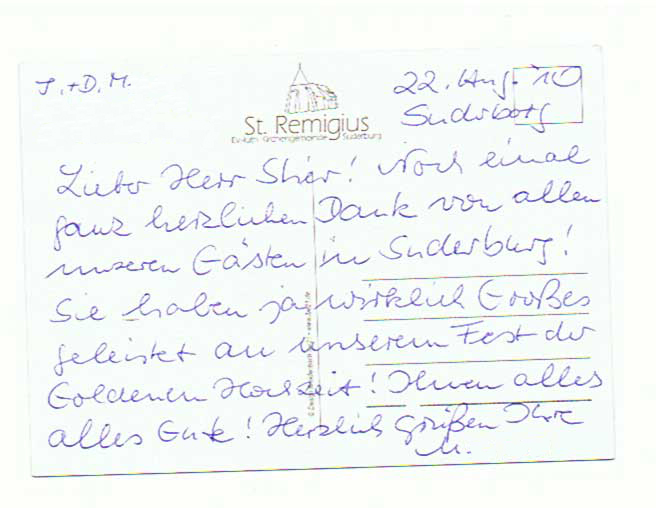 J. + D. M.
22. Aug. 10
Suderburg
St. Remigius
Ev.-luth. Kirchengemeinde Suderburg
Lieber Herr Stier! Noch einmal
ganz herzlichen Dank von allen
unseren Gästen in Suderburg!
Sie haben ja wirklich Großes
geleistet an unserem Fest der
Goldenen Hochzeit! Ihnen alles
alles Gute! Herzlich grüßen Ihre
M.